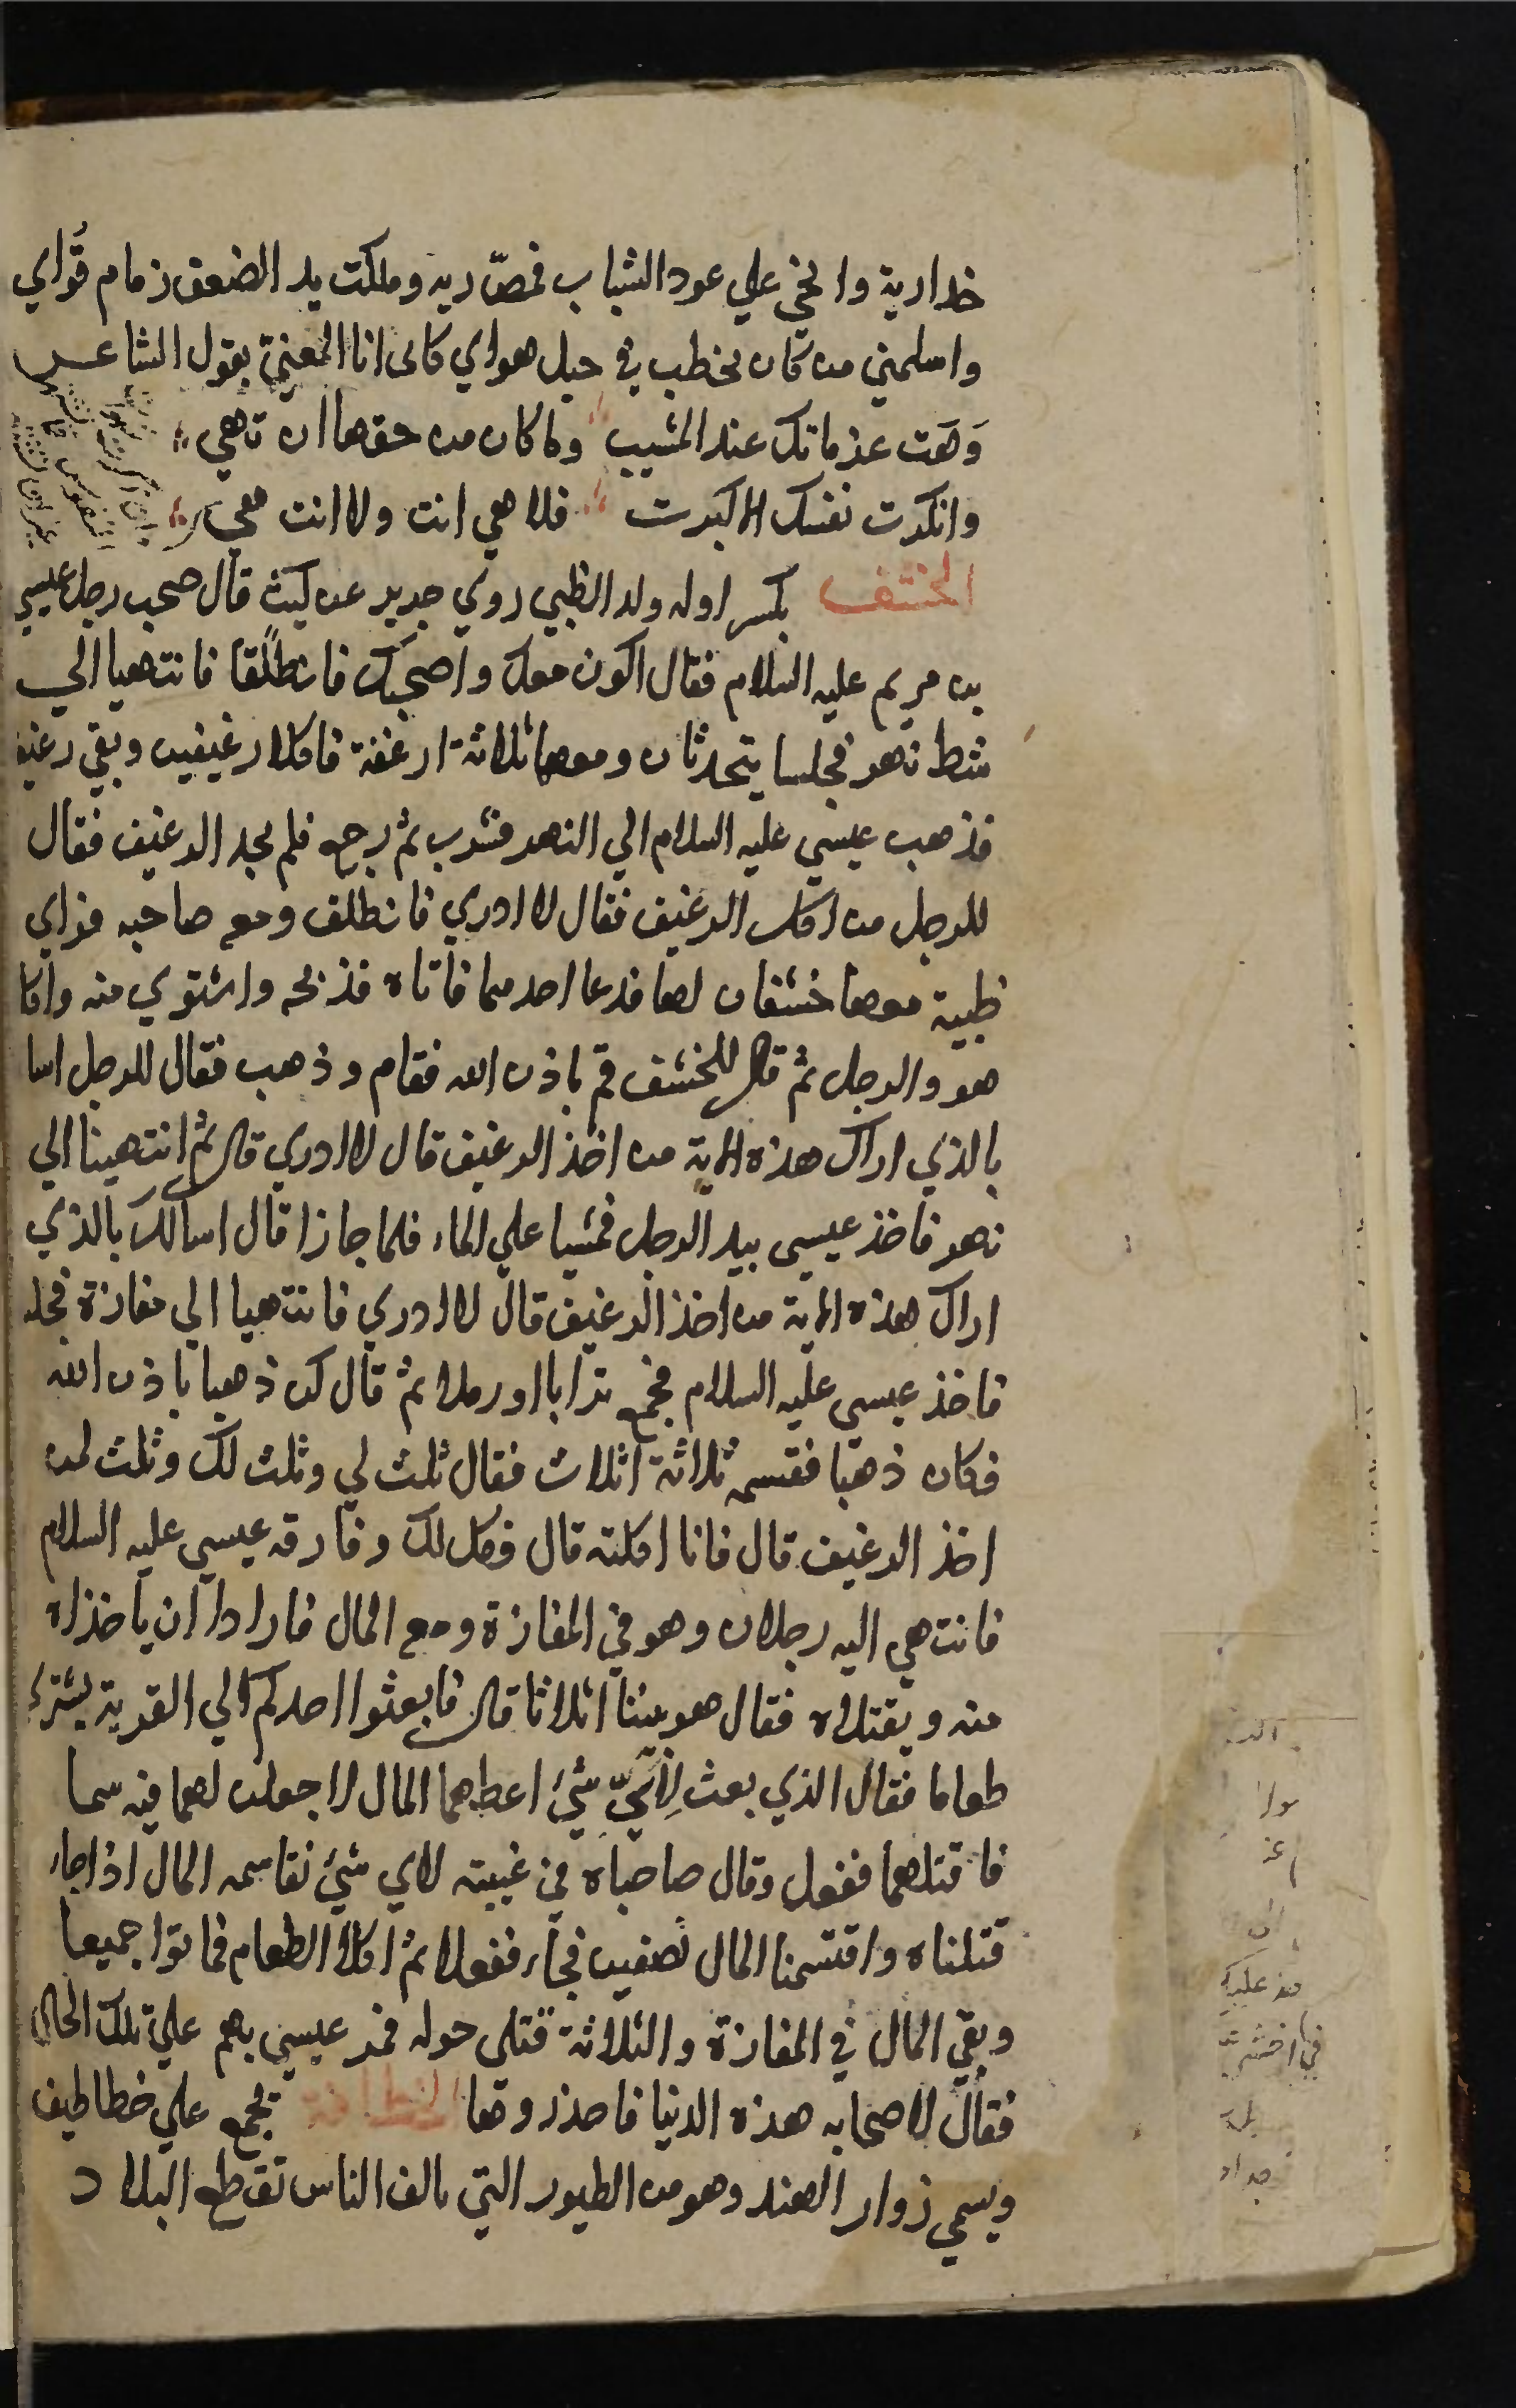 خدارية وانحني علي عود الشباب فمصّ ريه وملكت يد الضعف زمام قُواي
واسلمني من كان يخطب في حبل هواي كانى انا المعنيّ بقول الشاعر
وَهَت عزماتك عند المشيب وما كان من حقها ان تهي
وانكرت نفسك لما كبرت فلا هي انت ولا انت هي
الخشف بكسر اوله ولد الظبي روي جرير عن ليث قال صحب رجل عيسي
بن مريم عليه السلام فقال اكون معك واصحبك فانطلقا فانتهيا الي
شط نهر فجلسا يتحدثان ومعهما ثلاثة ارغفة فاكلا رغيفين وبقي رغيف
فذهب عيسي عليه السلام الي النهر فشرب ثم رجع فلم يجد الرغيف فقال
للرجل من اكل الرغيف فقال لا ادري فانطلق ومعه صاحبه فراي
ظبية معها خشفان لها فدعا احدهما فاتاه فذبحه واشتوي منه واكل
هو والرجل ثم قال للخشف قم باذن الله فقام وذهب فقال للرجل اسا
بالذي اراك هذه الاية من اخذ الرغيف قال لا ادري قال ثم انتهينا الي
نهر فاخذ عيسي بيد الرجل فمشيا علي الماء فلما جازا قال اسالك بالذي
اراك هذه الاية من اخذ الرغيف قال لا ادري فانتهيا الي مفازة فجلسا
فاخذ عيسي عليه السلام فجمع ترابا او رملا ثم قال كن ذهبا باذن الله
فكان ذهبا فقسمه ثلاثة اثلاث فقال ثلث لي وثلث لك وثلث لمن
اخذ الرغيف قال فانا اكلته قال فكل لك وفارقه عيسي عليه السلام
فانتهي اليه رجلان وهو في المفازة ومعه المال فارادا ان ياخذاه
منه ويقتلاه فقال هو بيننا اثلاثا قال فابعثوا احدكم الي القرية يشتري
طعاما فقال الذي بعث لأيّ شئ اعطيهما المال لاجعلن لهما فيه سما
فاقتلهما ففعل وقال صاحباه في غيبته لاي شئ نقاسمه المال اذا جاء
قتلناه واقتسمنا المال نصفين فجاء ففعلا ثم اكلا الطعام فماتوا جميعا
وبقي المال في المفازة والثلاثة قتلى حوله فمر عيسي بهم علي تلك الحال
فقال لاصحابه هذه الدنيا فاحذروها الخطاف تجمع علي خطاطيف
ويسمي زوار الهند وهو من الطيور التي تالف الناس تقطع البلاد